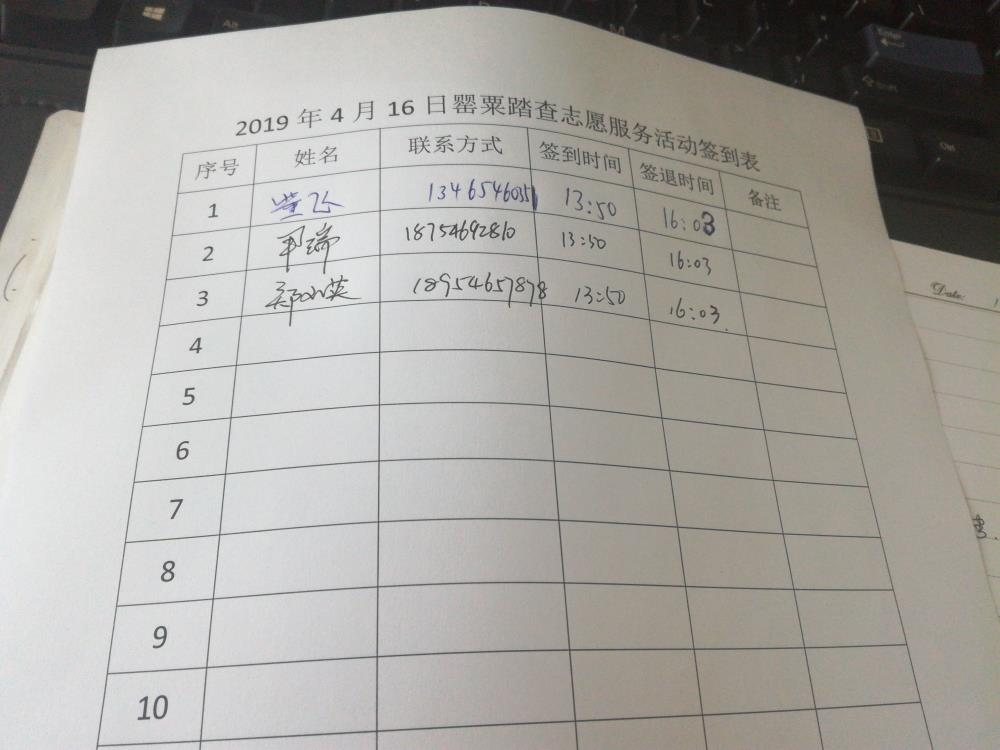 2019 年 4 月 16 日罂粟踏查志愿服务活动签到表
序号 姓名 联系方式 签到时间 签退时间 备注
1 柴飞 13465460351 13:50 16:03
2 18754692810 13:50 16:03
3 郑小英 18954657878 13:50 16:03.
4
5
6
7
8
9
10
Date:
Enter
Alt
Ctrl